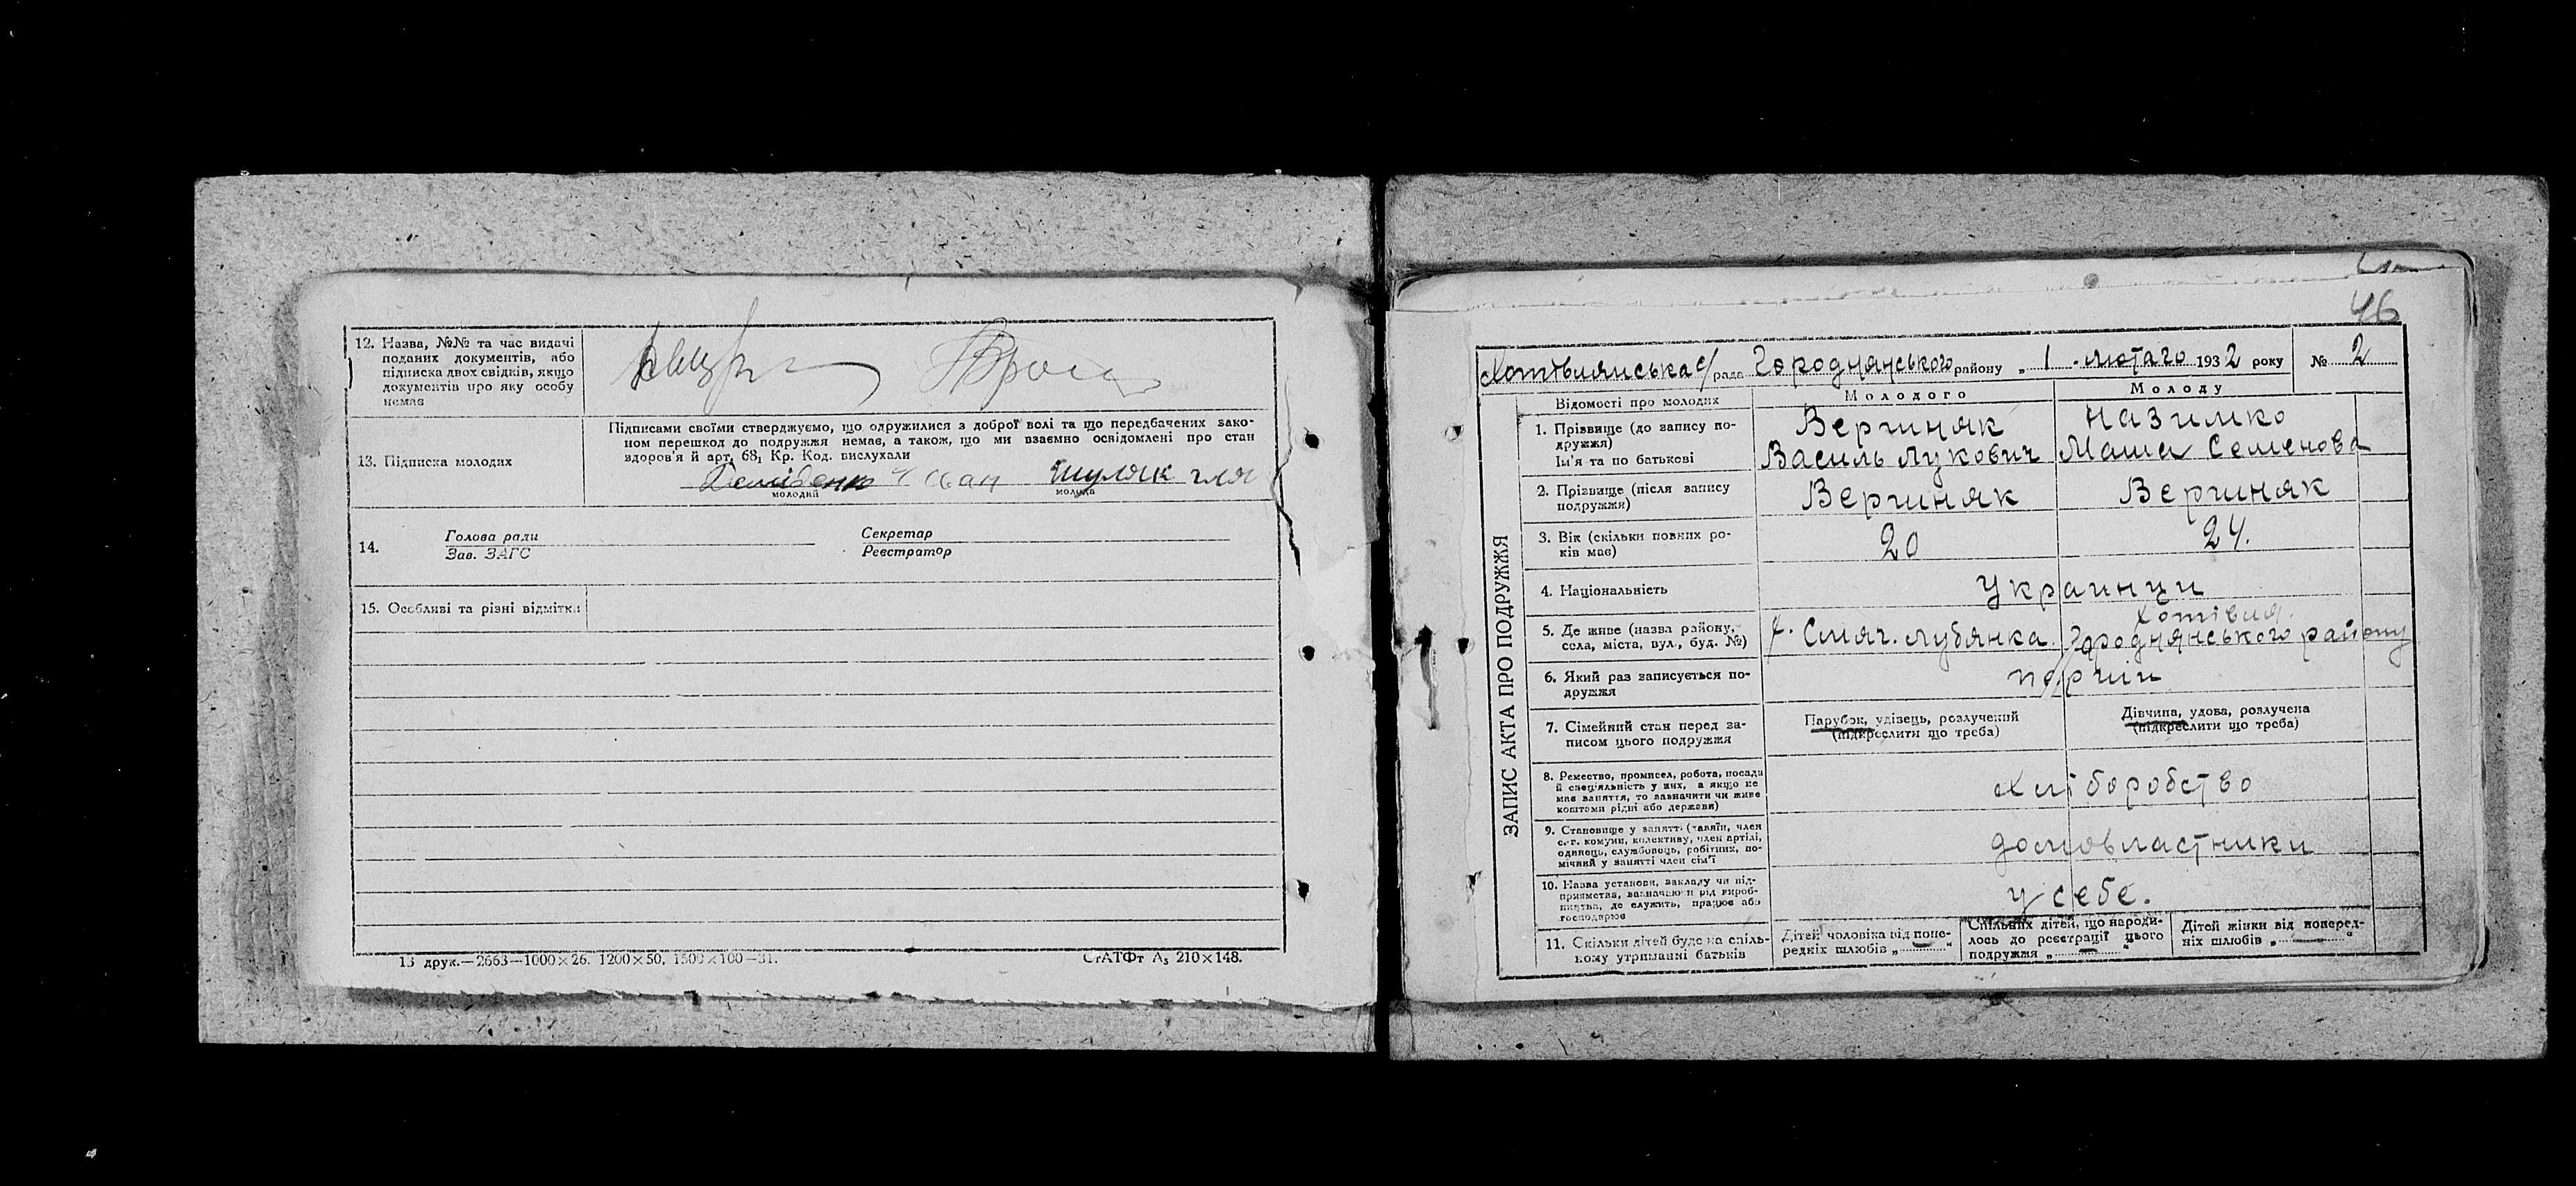 12. Назва, №№ та час видачі
поданих документів, або
підписка двох свідків, якщо
документів про яку особу
немає
13. Підписка молодих
Підписами своїми стверджуємо, що одружилися з доброї волі та що передбачених зако-
ном перешкод до подружжя немає, а також, що ми взаємно освідомлені про стан
здоров'я й арт. 68, Кр. Код. вислухали
Шуляк
молодий
молода
14.
Голова ради
Зав. ЗАГС
Секретар
Реєстратор
15. Особливі та різні відмітки
13 друк.—2663—1000×26. 1200×50, 1500×100—31.
СтАТФт А₅ 210×148.
46
Хотівлянська с/рада Городнянського району „ 1 - лютаго 1932 року № 2
ЗАПИС АКТА ПРО ПОДРУЖЖЯ
Відомості про молодих
Молодого
Молоду
1. Прізвище (до запису по-
дружжя)
Ім'я та по батькові
Вергиняк
Василь Лукович
Назимко
Маша Семенова
2. Прізвище (після запису
подружжя)
Вергиняк
Вергиняк
3. Вік (скільки повних ро-
ків має)
20
24.
4. Національність
Украинци
5. Де живе (назва району,
села, міста, вул., буд. №)
х. Смяч. Лубянка.
Хотівля.
Городнянського району
6. Який раз записується по-
дружжя
перший
7. Сімейний стан перед за-
писом цього подружжя
Парубок, удівець, розлучений
(підкреслити що треба)
Дівчина, удова, розлучена
(підкреслити що треба)
8. Ремество, промисел, робота, посада
й спеціяльність у них, а якщо не
має заняття, то зазначити чи живе
коштами рідні або держави)
Хліборобство
9. Становище у занятті (хазяїн, член
с.-г. комуни, колективу, член артілі,
одинець, службовець, робітник, по-
мічний у занятті член сім'ї
домовластники
10. Назва установи, закладу чи під-
приємства, зазначаючи рід вироб-
ництва, де служить, працює або
господарює
у себе.
11. Скільки дітей буде на спіль-
ному утриманні батьків
Дітей чоловіка від попе-
редніх шлюбів „ — “
Спільних дітей, що народи-
лось до реєстрації цього
подружжя „ — “
Дітей жінки від поперед-
ніх шлюбів „ — “